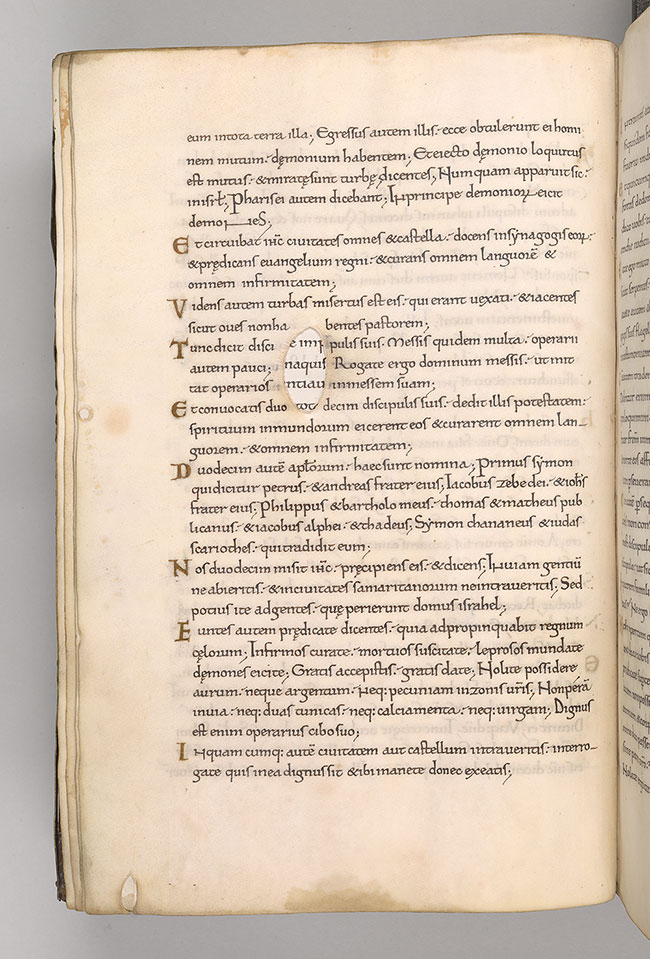 eum intota terra illa; Egressus autem illis· ecce obtulerunt ei homi
nem mutum· dęmonium habentem; Et eiecto dęmonio locutus
est mutus· & miratę sunt turbę dicentes; Numquam apparuit sic·
in isrł; Pharisei autem dicebant; In principe demonioꝝ eicit
demones;
Et circuibat ihc̄ civitates omnes & castella· docens insynagogis eoꝝ·
& prędicans evangelium regni· & curans omnem languorē &
omnem infirmitatem;
Videns autem turbas misertus est eis· qui erant uexati· & iacentes
sicut oues non ha bentes pastorem;
Tunc dicit disci pulis suis· Messis quidem multa· operarii
autem pauci; Rogate ergo dominum messis· ut mit
tat operarios inmessem suam;
Et convocatis duo decim discipulis suis· dedit illis potestatem·
spirituum inmundorum eicerent eos & curarent omnem lan
guorem· & omnem infirmitatem;
Duodecim autē aplorum· haec sunt nomina; Primus symon
qui dicitur petrus· & andreas frater eius; Iacobus zebedei· & iohs̄
frater eius; Philippus & bartholomeus· thomas & matheus pub
licanus· & iacobus alphei· & thadeus; Symon chananeus & iudas
scariothes· qui tradidit eum;
Nos duodecim misit ihc̄· pręcipiens eis· & dicens; In uiam gentiū
ne abieritis· & in ciuitates samaritanorum ne intraveritis; Sed
potius ite ad gentes· quę perierunt domus israhel;
Euntes autem prędicate dicentes· quia adpropinquabit regnum
cęlorum; Infirmos curate· mortuos suscitate· leprosos mundate
dęmones eicite; Gratis accepistis· gratis date; Nolite possidere
aurum· neque argentum· Neq; pecuniam inzonis ur̄is; Non perā
inuia· neq; duas tunicas· neq; calciamenta· neq; uirgam; Dignus
est enim operarius cibo suo;
In quam cumq; autē civitatem aut castellum intraveritis· interro-
gate quis inea dignus sit & ibi manete donec exeatis;